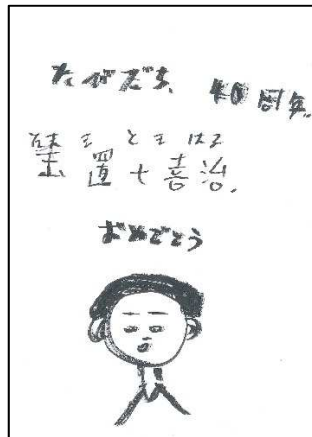 たびだち、 40周年。
たま き と き はる
置十喜治.
おめでとう